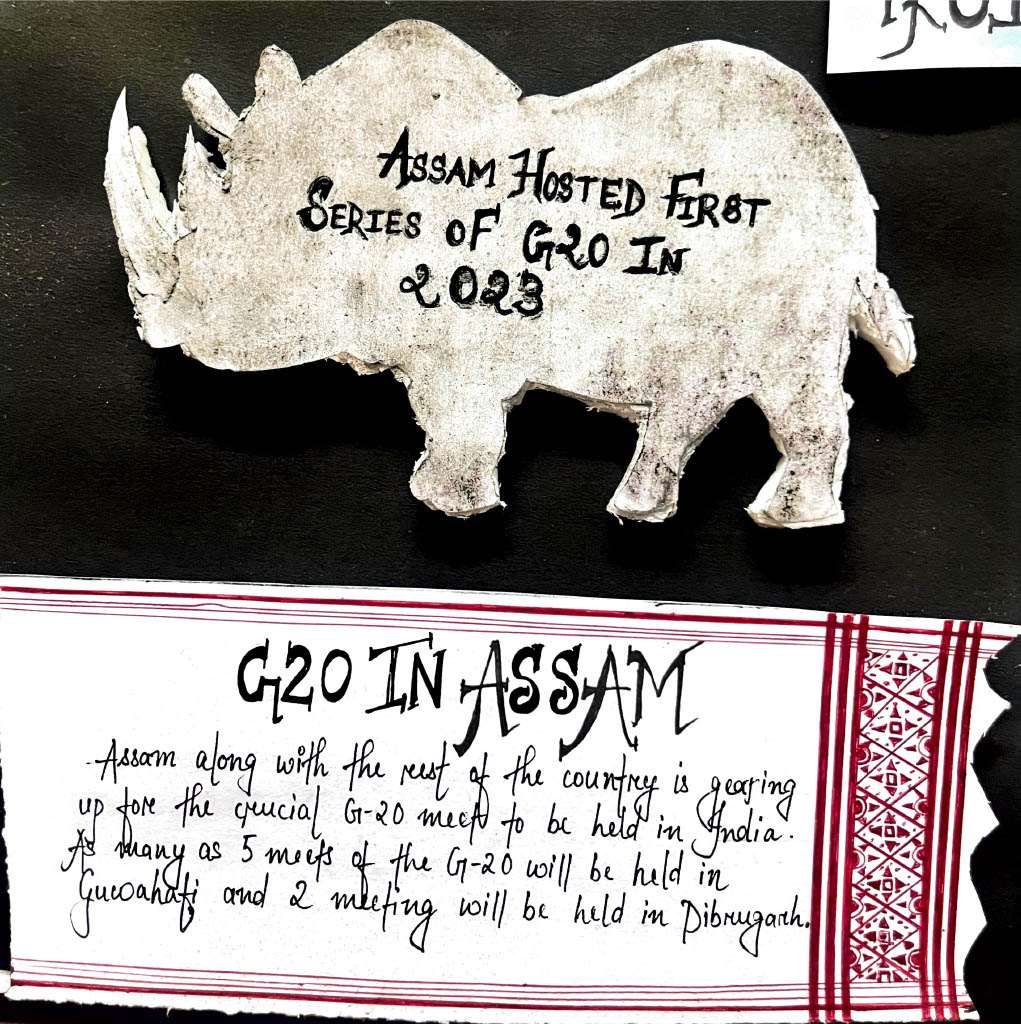 ASSAM HOSTED FIRST
SERIES OF G20 IN
2023
G20 IN ASSAM
Assam along with the rest of the country is gearing
up fore the crucial G-20 meet to be held in India.
As many as 5 meets of the G-20 will be held in
Guwahati and 2 meeting will be held in Dibrugarh.